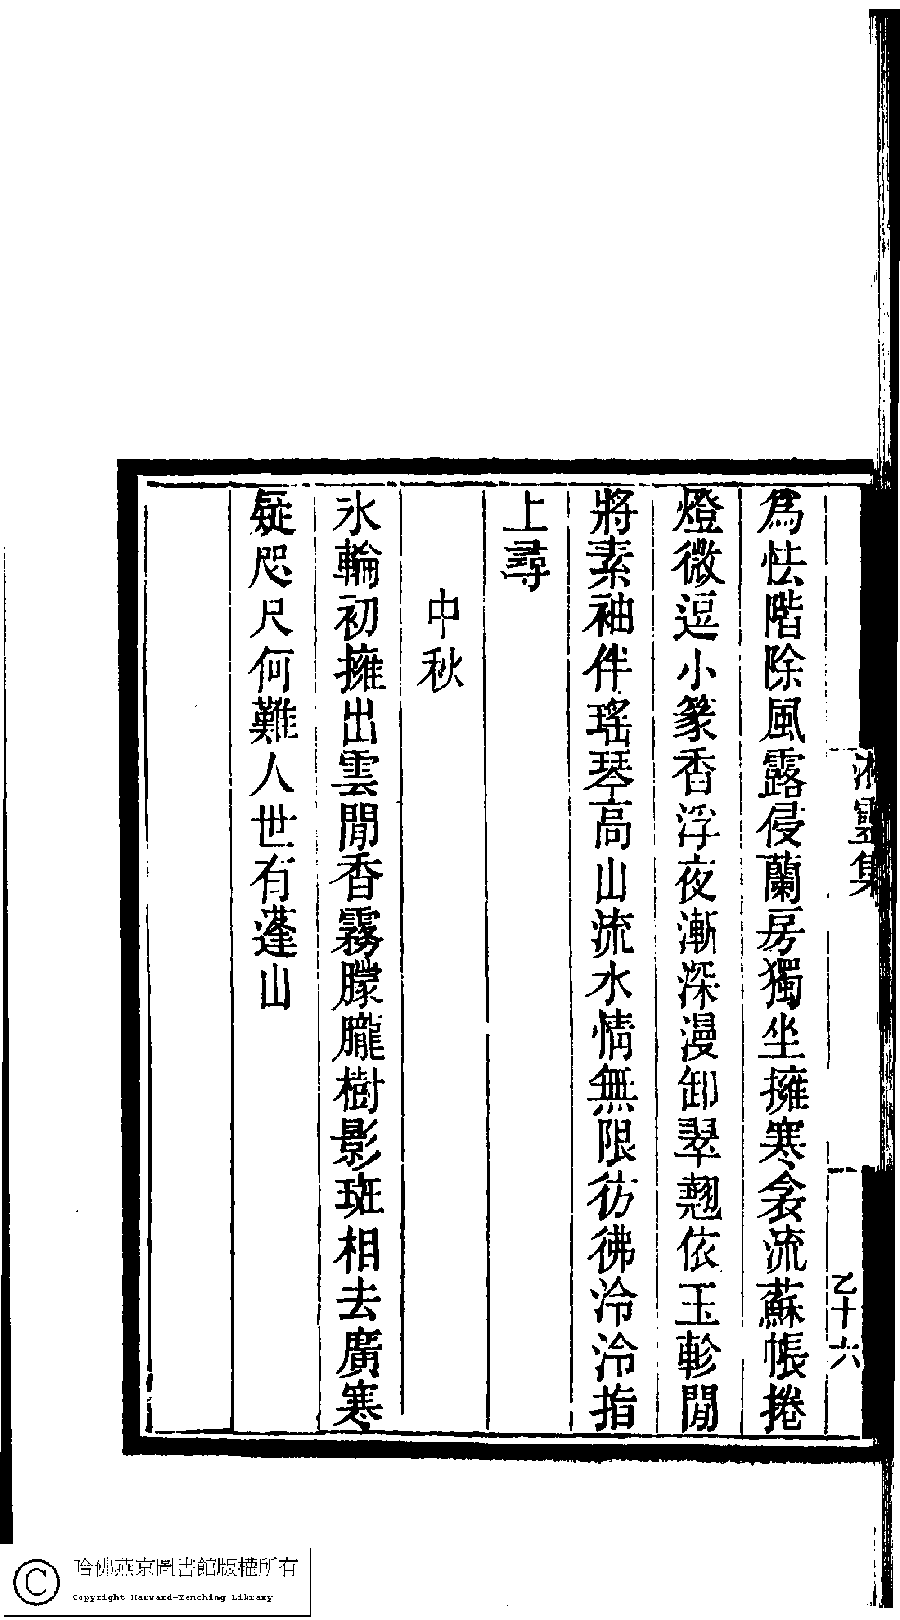 為怯階除風露侵蘭房獨坐擁寒衾流蘇帳捲
燈微逗小篆香浮夜漸深漫卸翠翹依玉軫閒
將素袖伴瑤琴高山流水情無限彷彿泠泠指
上尋
中秋
氷輪初擁出雲間香霧朦朧樹影斑相去廣寒
疑咫尺何難人世有蓬山
湘靈集
乙十六
哈佛燕京圖書館版權所有
Copyright Harvard-Yenching Library